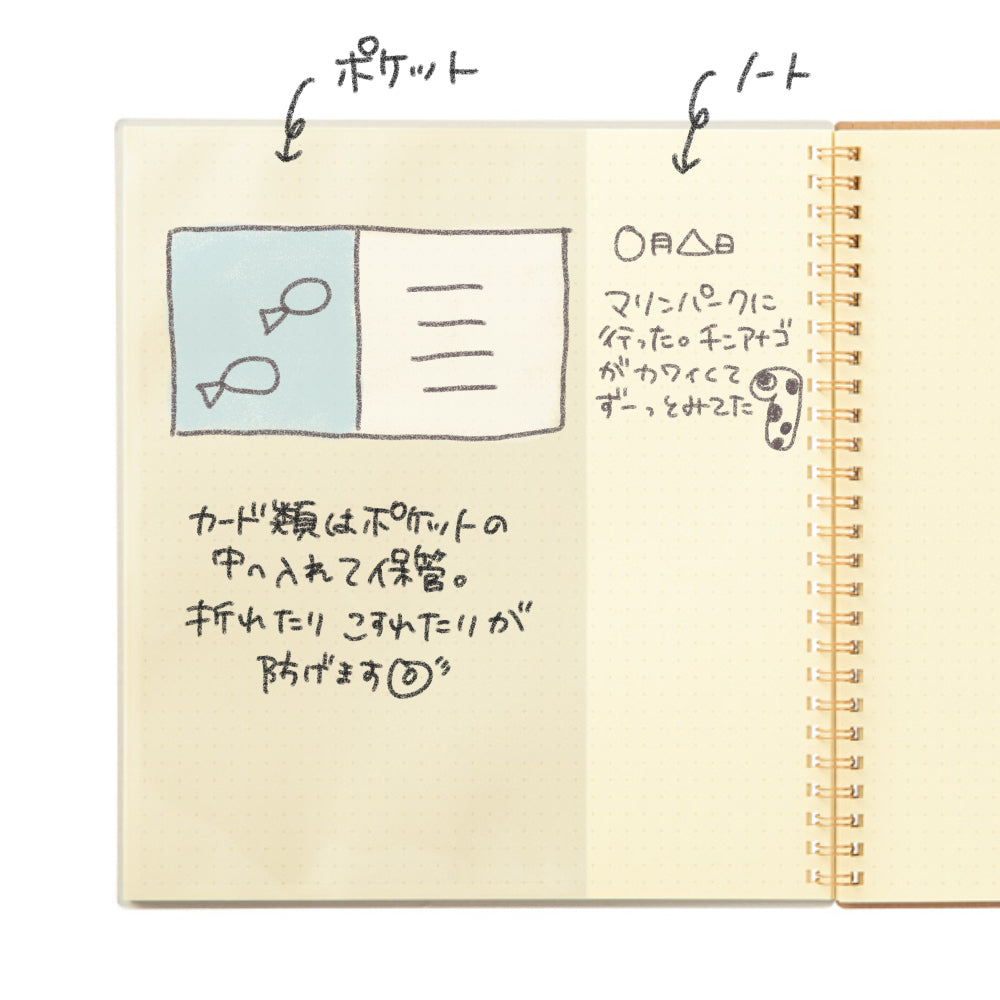 ポケット
ノート
〇月△日
マリンパークに
行った。チンアナゴ
がカワイくて
ずーっとみてた
カード類はポケットの
中へ入れて保管。
折れたり こすれたりが
防げます◎